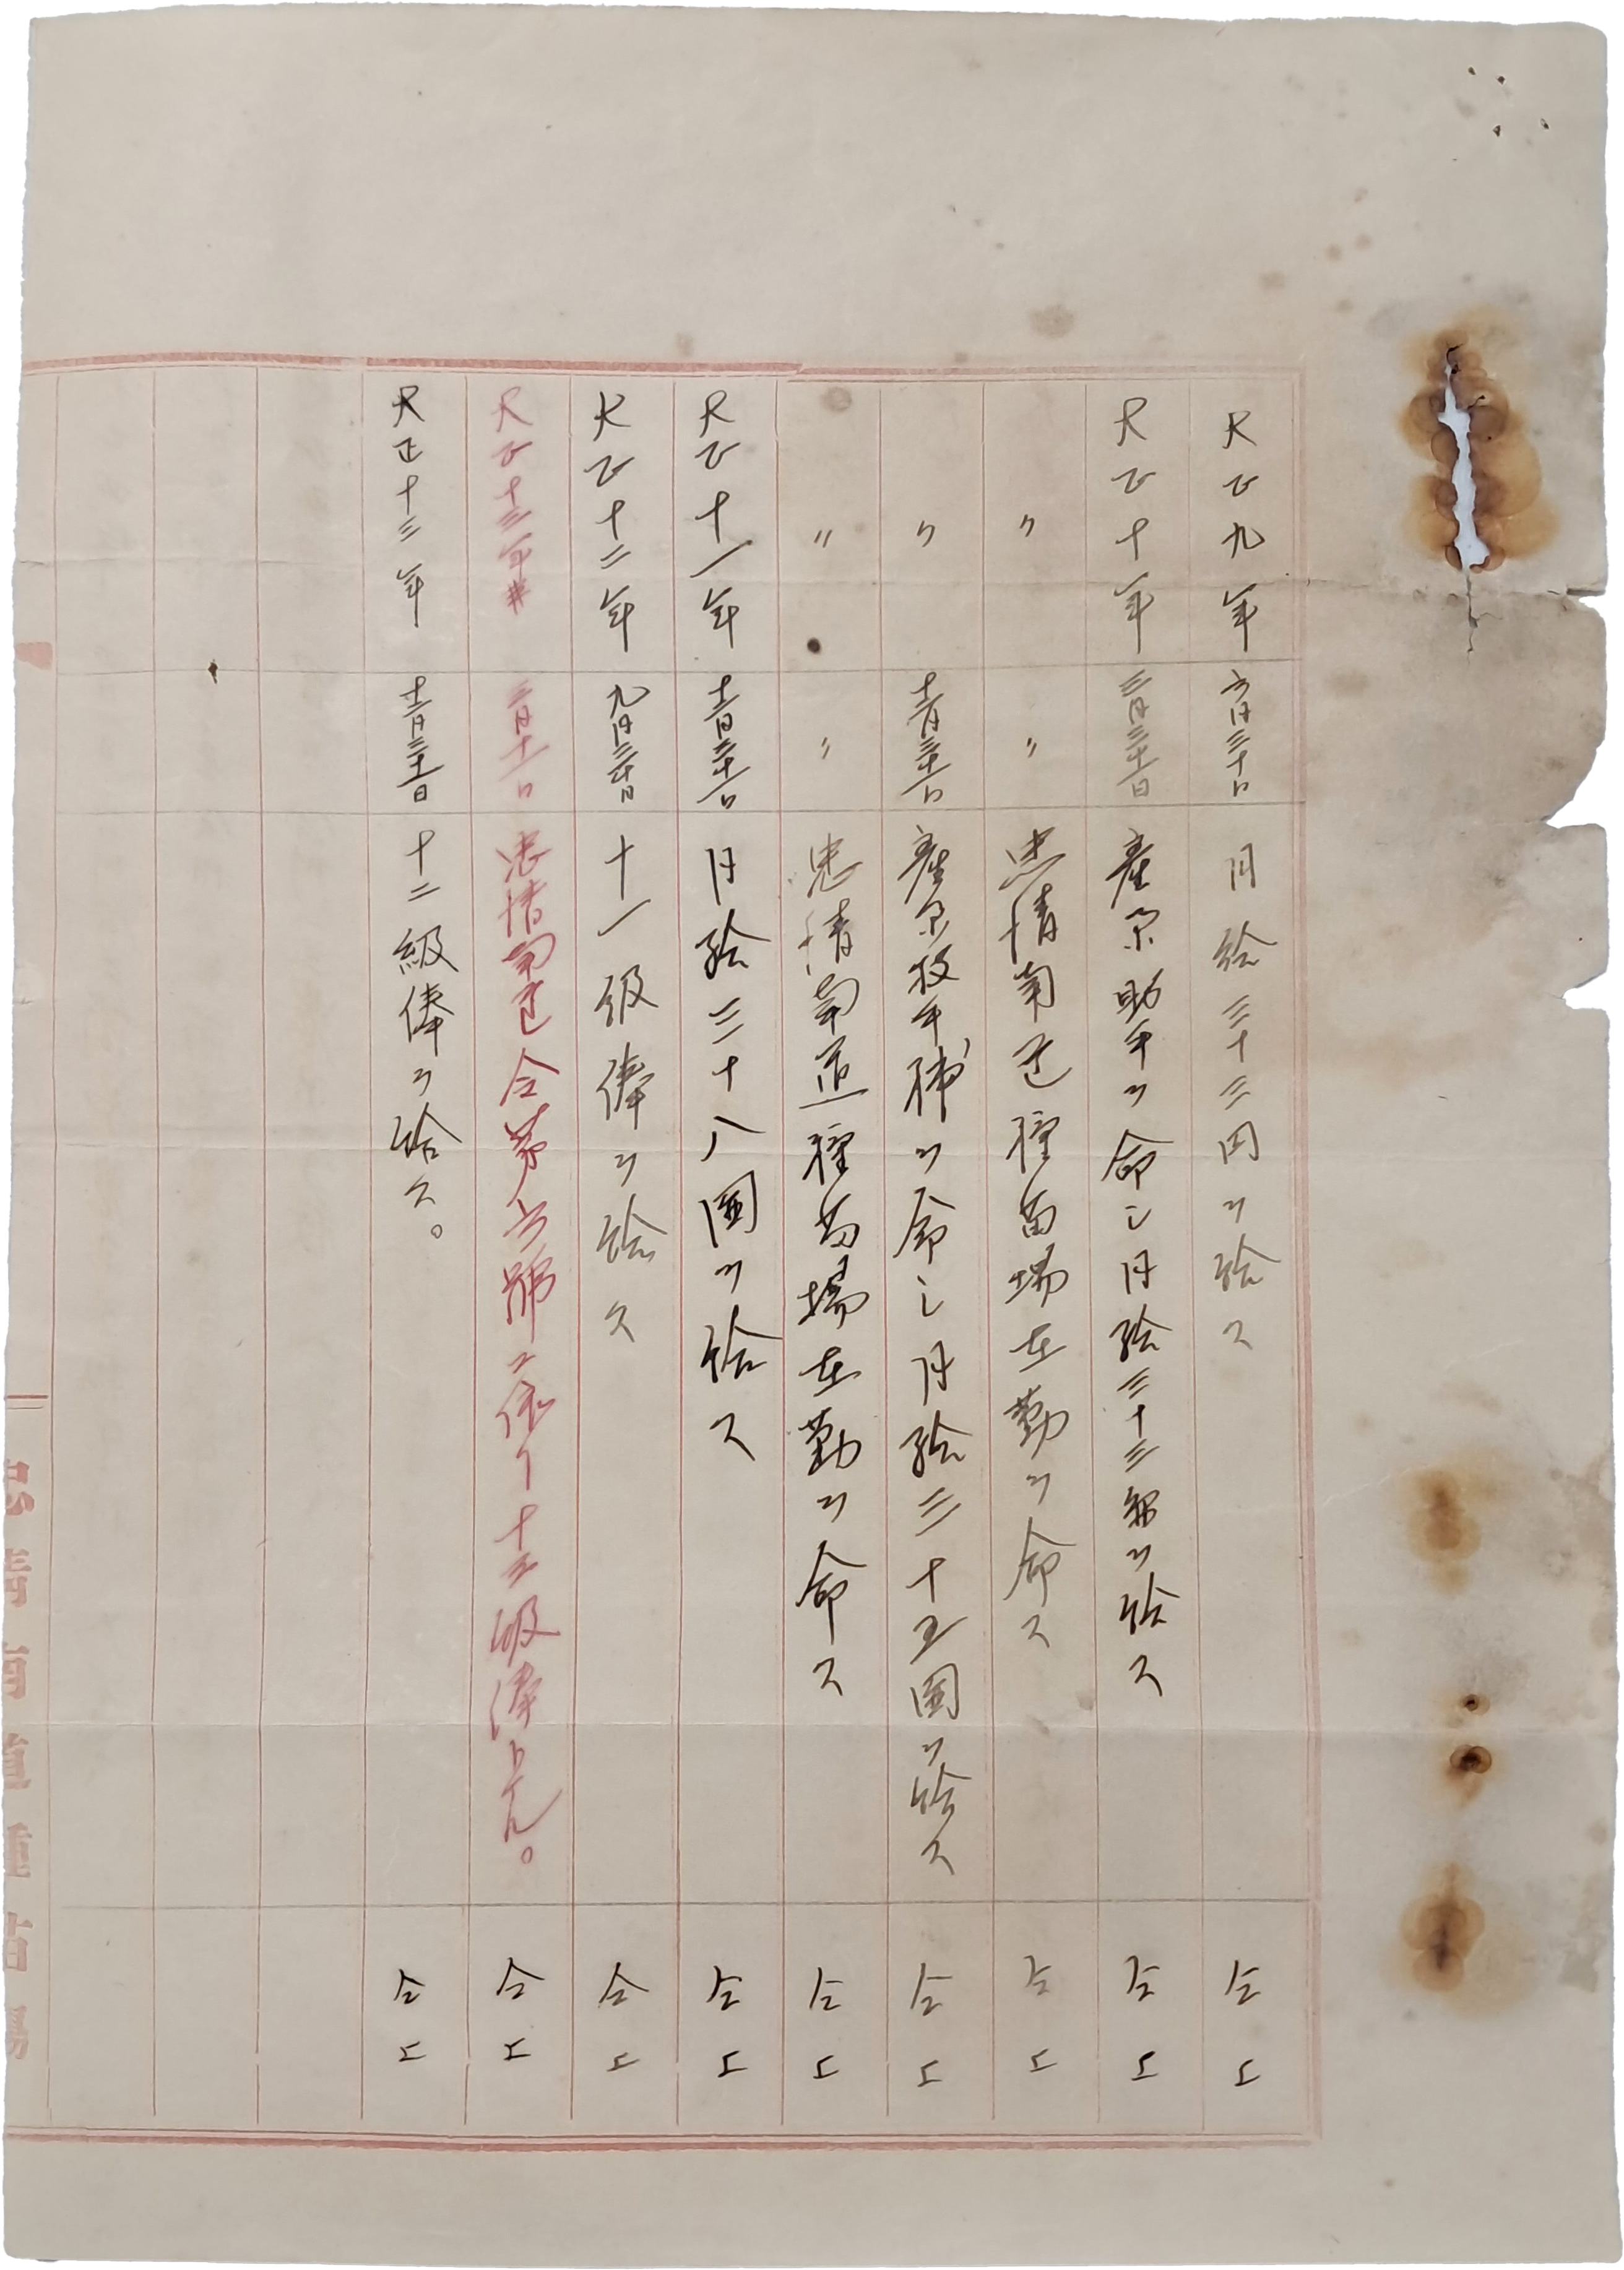 大正九年 六月三十日 月給三十三円ヲ給ス 仝上
大正十年 三月三十一日 産業助手ヲ命シ月給三十三円ヲ給ス 仝上
〃 〃 忠清南道種苗場在勤ヲ命ス 仝上
〃 十二月三十一日 産業技手補ヲ命シ月給三十五圓ヲ給ス 仝上
〃 〃 忠清南道種苗場在勤ヲ命ス 仝上
大正十一年 十二月三十一日 月給三十八圓ヲ給ス 仝上
大正十二年 九月三十日 十一級俸ヲ給ス 仝上
大正十三年 三月十一日 忠清南道令第六號ニ依リ十三級俸トナル。 仝上
大正十三年 十二月三十一日 十二級俸ヲ給ス。 仝上
忠清南道種苗場